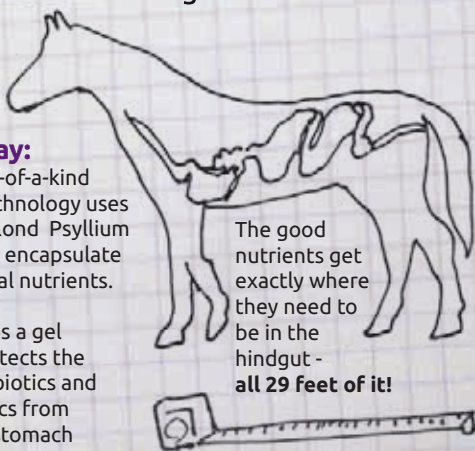 ay:
-of-a-kind
chnology uses
lond Psyllium
encapsulate
al nutrients.
s a gel
tects the
biotics and
cs from
stomach
The good
nutrients get
exactly where
they need to
be in the
hindgut -
all 29 feet of it!